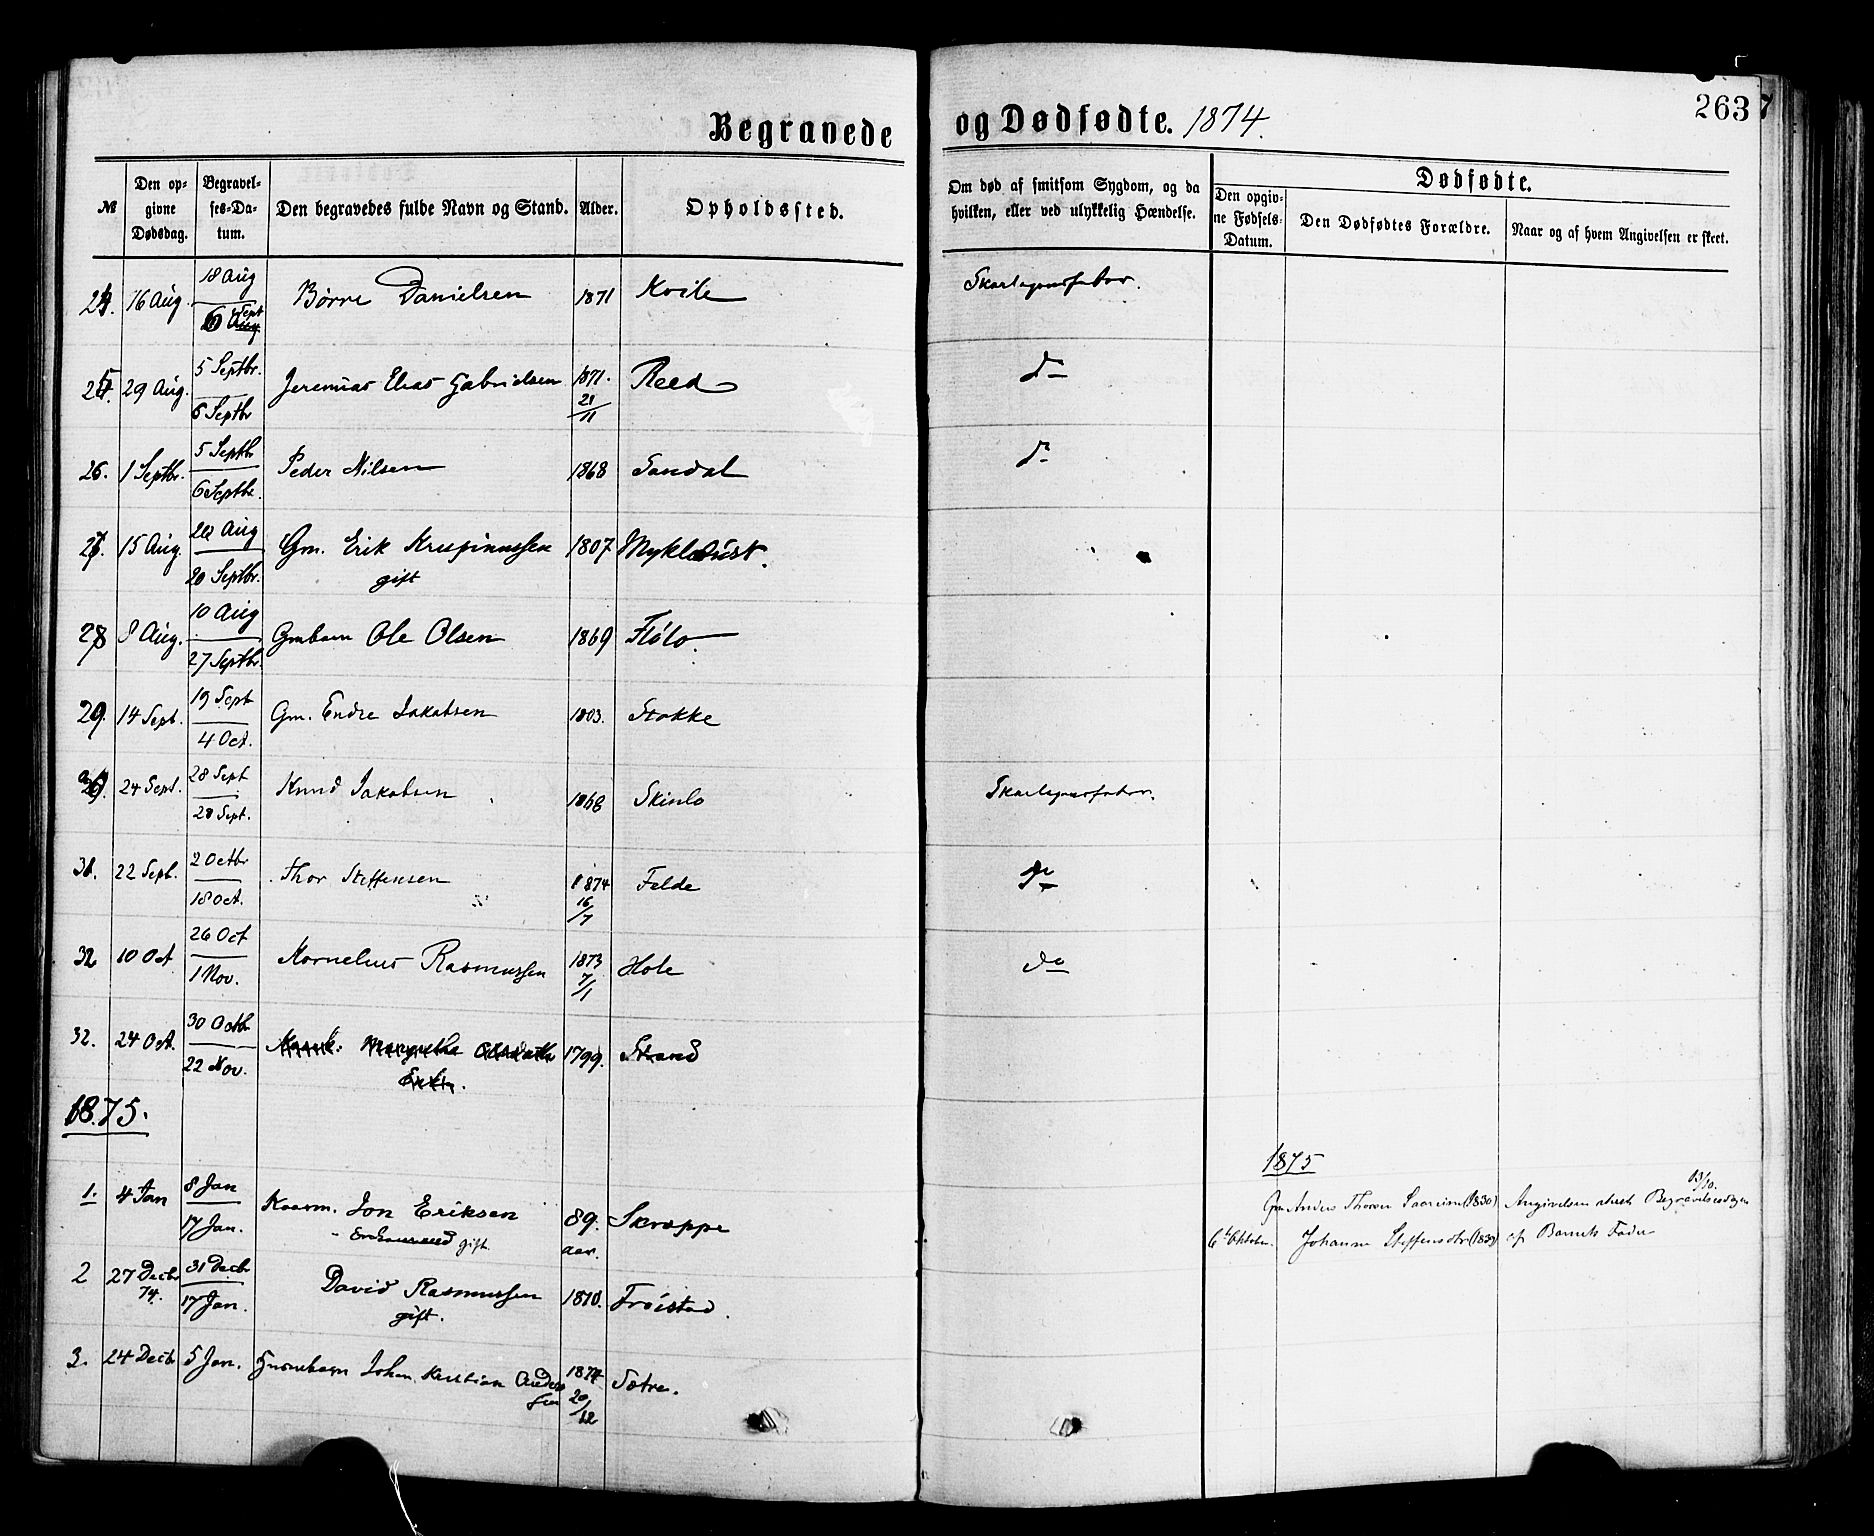 263
Begravede og Dødfødte. 1874.
№ Den opgivne Dødsdag. Begravelses-Datum. Den begravedes fulde Navn og Stand. Alder. Opholdssted. Om død af smitsom Sygdom, og da hvilken, eller ved ulykkelig Hændelse. Dødfødte.
Den opgivne Fødsels-Datum. Den Dødfødtes Forældre. Naar og af hvem Angivelsen er skeet.
24. 16 Aug. 18 Aug Børre Danielsen 1871 Kvile Skarlagensfeber.
6 Sept
25. 29 Aug. 5 Septbr. Jeremias Elias Gabrielsen 1871. Reed do
6 Septbr 21/11
26. 1 Septbr. 5 Septbr Peder Nilsen 1868 Sandal do
6 Septbr.
27. 15 Aug. 20 Aug Gm. Erik Krispinussen 1807 Myklebust.
20 Septbr. gift
28 8 Aug. 10 Aug Gmbarn Ole Olsen 1869 Flølo
27 Septbr.
29. 14 Sept. 19 Sept Gm. Endre Jakobsen 1803. Stokke
4 Oct.
30. 24 Sept. 28 Sept Knud Jakobsen 1868 Skinlo Skarlagensfeber.
28 Sept.
31. 22 Sept. 2 Octbr Thor Steffensen 1874 Felde do
18 Oct. 16/7
32 10 Oct 26 Oct Kornelius Rasmussen 1873 Hole do
1 Nov. 7/1
32. 24 Oct. 30 Octbr Margrethe 1799. Strand
22 Nov. Enke.
1875.
1875
1. 4 Jan 8 Jan Kaarm. Jon Eriksen 89. Skrøppe
17 Jan. gift. aar.
Gm Anders Thoresen (1830) Angivelsen skeet Begravelsesdagen 13/10.
6te Oktober. Johanne Steffensdtr af Barnets Fader
2 27 Decbr 74. 31 Decbr David Rasmussen 1810. Frøistad.
17 Jan. gift.
3. 24 Decbr 5 Jan. Johan Kristian Andersen 1874 Sætre.
20/12